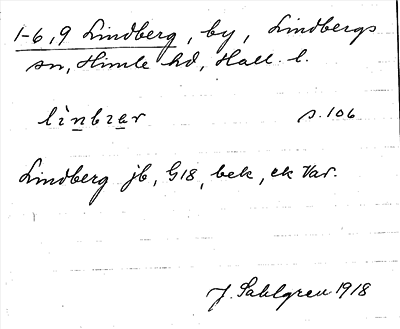 1-6, 9 Lindberg, by, Lindbergs
sn, Himle hd, Hall. l.
lìnbɪær s. 106
Lindberg jb, G18, bek, ek Var.
J. Sahlgren 1918